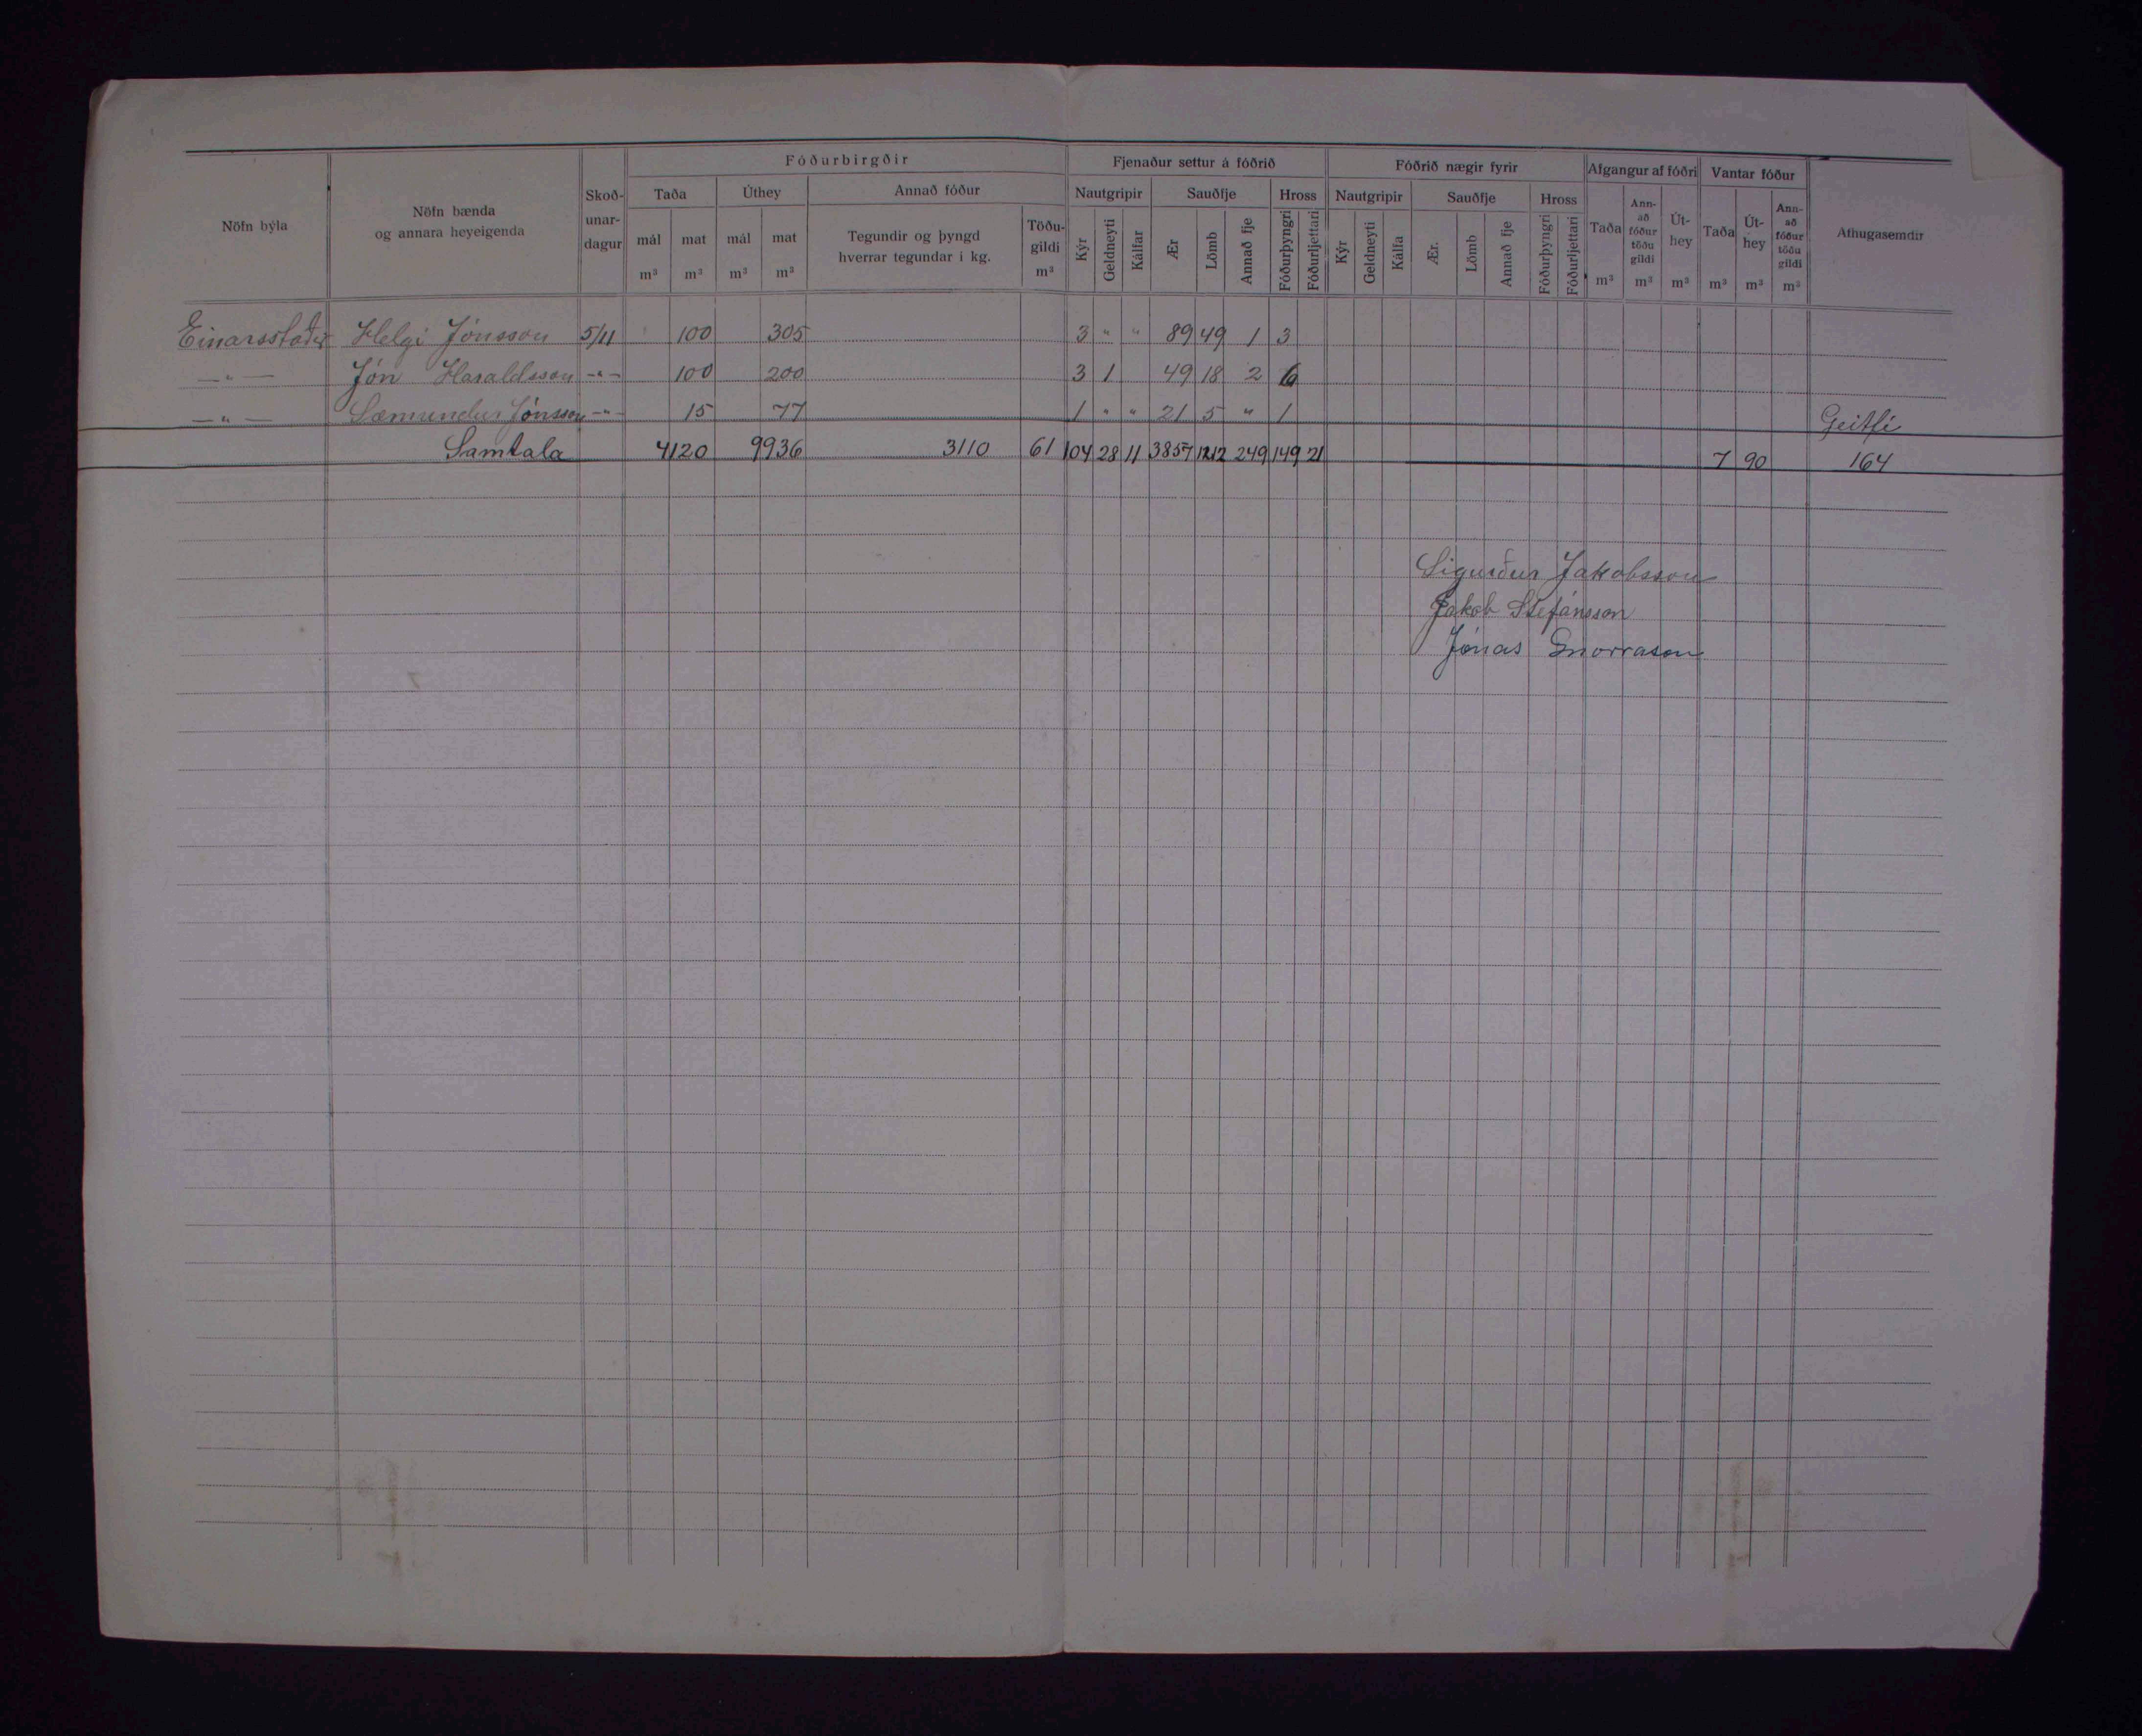 Nöfn býla | Nöfn bænda og annara heyeigenda | Skoð-unar-dagur | Fóðurbirgðir | Fjenaður settur á fóðrið | Fóðrið nægir fyrir | Afgangur af fóðri | Vantar fóður | Athugasemdir
Taða | Úthey | Annað fóður | Nautgripir | Sauðfje | Hross | Nautgripir | Sauðfje | Hross | Taða m³ | Ann-að fóður töðu gildi m³ | Út-hey m³ | Taða m³ | Út-hey m³ | Ann-að fóður töðu gildi m³
mál m³ | mat m³ | mál m³ | mat m³ | Tegundir og þyngd hverrar tegundar í kg. | Töðu-gildi m³ | Kýr | Geldneyti | Kálfar | Ær | Lömb | Annað fje | Fóðurþyngri | Fóðurljettari | Kýr | Geldneyti | Kálfa | Ær. | Lömb | Annað fje | Fóðurþyngri | Fóðurljettari
Einarsstaðir Helgi Jónsson 5/11 100 305 3 " " 89 49 1 3
—"— Jón Haraldsson -"- 100 200 3 1 49 18 2 6
—"— Sæmundur Jónsson -"- 15 77 1 " " 21 5 " 1 Geitfé
Samtala 4120 9936 3110 61 104 28 11 3857 1212 249 149 21 7 90 164
Sigurður Jakobsson
Jakob Stefánsson
Jónas Snorrason